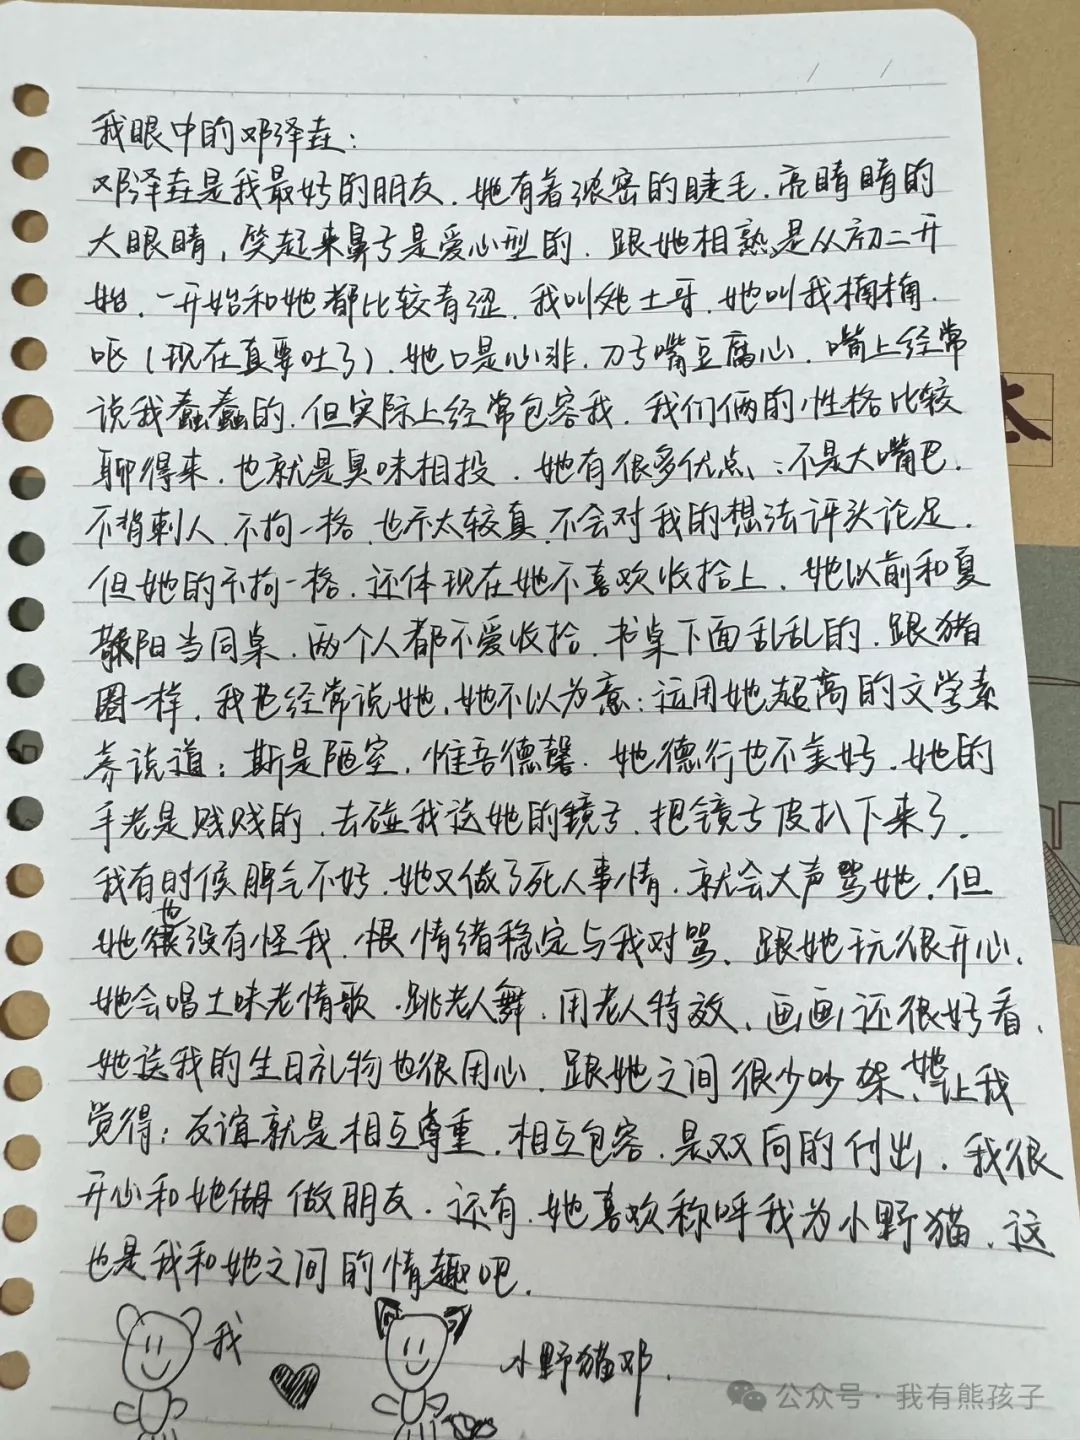 我眼中的邓泽垚：
邓泽垚是我最好的朋友.她有着浓密的睫毛.亮晴晴的
大眼睛，笑起来鼻子是爱心型的.跟她相熟是从初二开
始.一开始和她都比较青涩.我叫她土哥.她叫我楠楠.
呕(现在真要吐了).她口是心非.刀子嘴豆腐心.嘴上经常
说我蠢蠢的.但实际上经常包容我.我们俩的性格比较
聊得来.也就是臭味相投.她有很多优点：不是大嘴巴.
不背刺人.不拘一格.也不太较真.不会对我的想法评头论足.
但她的不拘一格.还体现在她不喜欢收拾上.她以前和夏
阳当同桌.两个人都不爱收拾.书桌下面乱乱的.跟猪
圈一样.我也经常说她.她不以为意：运用她超高的文学素
养说道：斯是陋室，惟吾德馨.她德行也不美好.她的
手老是贱贱的.去碰我送她的镜子.把镜子皮扒下来了.
我有时候脾气不好.她又做了死人事情.就会大声骂她.但
她也没有怪我.很情绪稳定与我对骂.跟她玩很开心.
她会唱土味老情歌.跳老人舞.用老人特效、画画还很好看.
她送我的生日礼物也很用心.跟她之间很少吵架、她让我
觉得：友谊就是相互尊重.相互包容.是双向的付出.我很
开心和她做朋友.还有.她喜欢称呼我为小野猫.这
也是我和她之间的情趣吧.
我
小野猫邓.
公众号·我有熊孩子